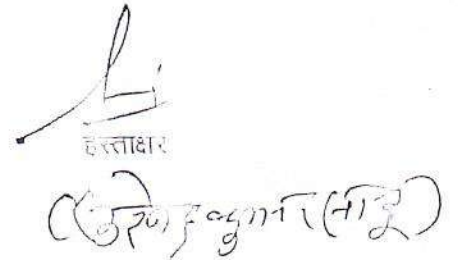 हस्ताक्षर
(सुरेन्द्र कुमार साहू)